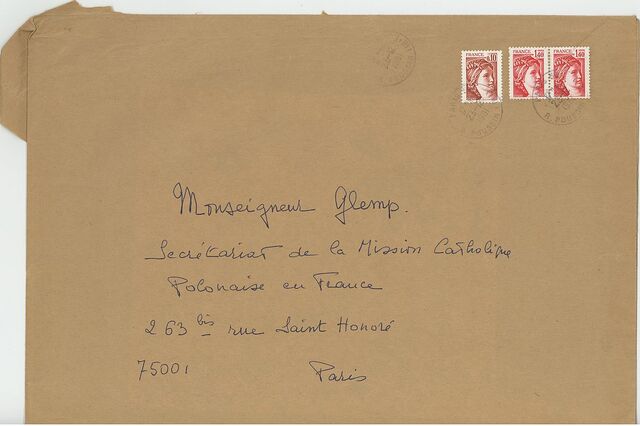 FRANCE 0,10
FRANCE 1,40
FRANCE 1,40
R. POUSSIN
Monseigneur Glemp.
Secrétariat de la Mission Catholique
Polonaise en France
263 bis rue Saint Honoré
75001 Paris